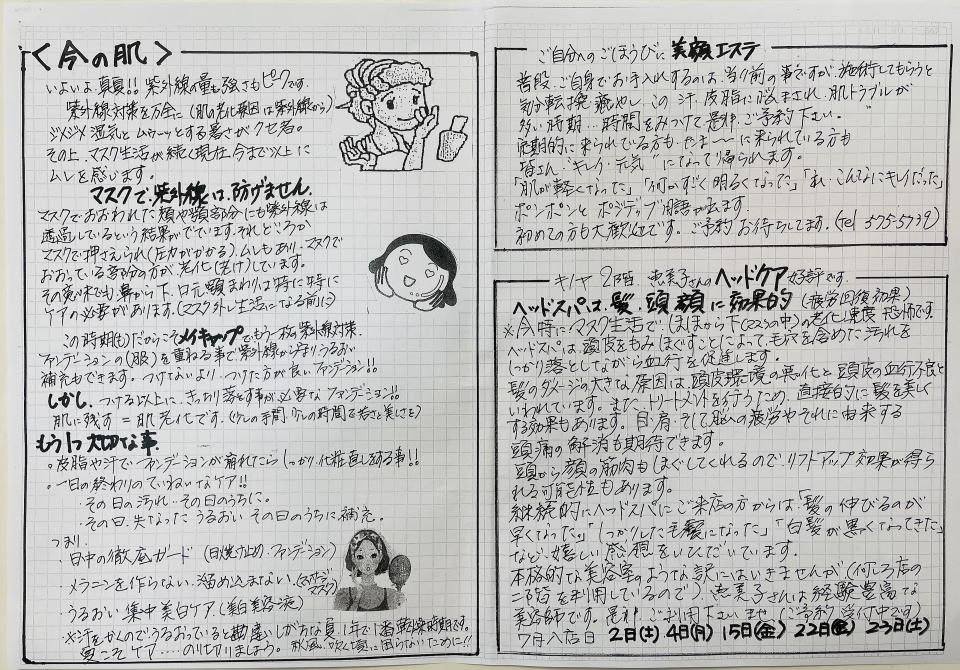 <今の肌>
いよいよ真夏!! 紫外線の量も強さもピークです。
紫外線対策を万全に (肌の老化原因は紫外線から)
ジメジメ湿気とムゥーッとする暑さがクセ者。
その上、マスク生活が続く現在、今まで以上に
ムレを感じます。
マスクで紫外線は防げません。
マスクでおおわれた頬や顎部分にも紫外線は
透過しているという結果がでています。それどころか
マスクで押さえられ(圧力がかかる)、ムレもあり、マスクで
おおっている部分の方が、老化(老け)しています。
その意味でも鼻から下、口元、顎まわりは特に特に
ケアの必要があります。(マスク外し生活になる前に)
この時期(も)だからこそメイキャップでもう一枚の紫外線対策。
ファンデーションの(服)を重ねる事で紫外線から守りうるおい
補充もできます。つけないより、つけた方が良いファンデーション!!
しかし、つける以上に、きっちり落とす事が必要なファンデーション!!
肌に残す = 肌老化です。(少しの手間、少しの時間で若さと美しさを)
もう1つ大切な事
。皮脂や汗でファンデーションが崩れたらしっかり化粧直しをする事!!
。一日の終わりのていねいなケア!!
・その日の汚れ…その日のうちに。
・その日、失なったうるおいその日のうちに補充。
つまり
・日中の徹底ガード (日焼け止め・ファンデーション)
・メラニンを作らない、溜め込まない (マッサージ マスク)
・うるおい集中美白ケア (美白美容液)
※汗をかくのでうるおっていると勘違いしがちな夏、1年で1番乾燥時期です。
夏こそケア……のり切りましょう。秋風吹く頃に困らないために!!
ご自分へのごほうびに 美顔エステ
普段、ご自身でお手入れするのは、当り前の事ですが、施術してもらうと
気分転換、癒やし、この汗、皮脂に悩まされ、肌トラブルが
多い時期…時間をみつけて是非、ご予約下さい。
定期的に来られている方も、たま〜に来られている方も
皆さん "キレイ・元気" になって帰られます。
「肌が軽くなった」「何かすごく明るくなった」「私、こんなにキレイだった」
ポンポンとポジティブ用語が出ます。
初めての方も大歓迎です。ご予約お待ちしてます。(Tel 575-5739)
キノヤ 2階 恵美子さんの ヘッドケア 好評です。
ヘッドスパは、髪、頭、顔に効果的 (疲労回復効果)
※今、特にマスク生活で、ほほから下(マスクの中)の老化速度恐怖です。
ヘッドスパは、頭皮をもみほぐすことによって、毛穴を含めた汚れを
しっかり落としながら血行を促進します。
髪のダメージの大きな原因は、頭皮環境の悪化と頭皮の血行不良と
いわれています。また、トリートメントを行うため、直接的に髪を美しく
する効果もあります。目、肩、そして脳への疲労やそれに由来する
頭痛の解消も期待できます。
頭から顔の筋肉もほぐしてくれるので、リフトアップ効果が得ら
れる可能性もあります。
継続的にヘッドスパにご来店の方からは「髪の伸びるのが
早くなった」「しっかりした毛髪になった」「白髪が黒くなってきた」
など、嬉しい感想をいただいています。
本格的な美容室のような訳にはいきませんが(何しろ店の
二階を利用しているので)、恵美子さんは経験豊富な
美容師です。是非、ご利用下さいませ (ご予約受付中です)
7月入店日 2日(土) 4日(月) 15日(金) 22日(金) 23日(土)